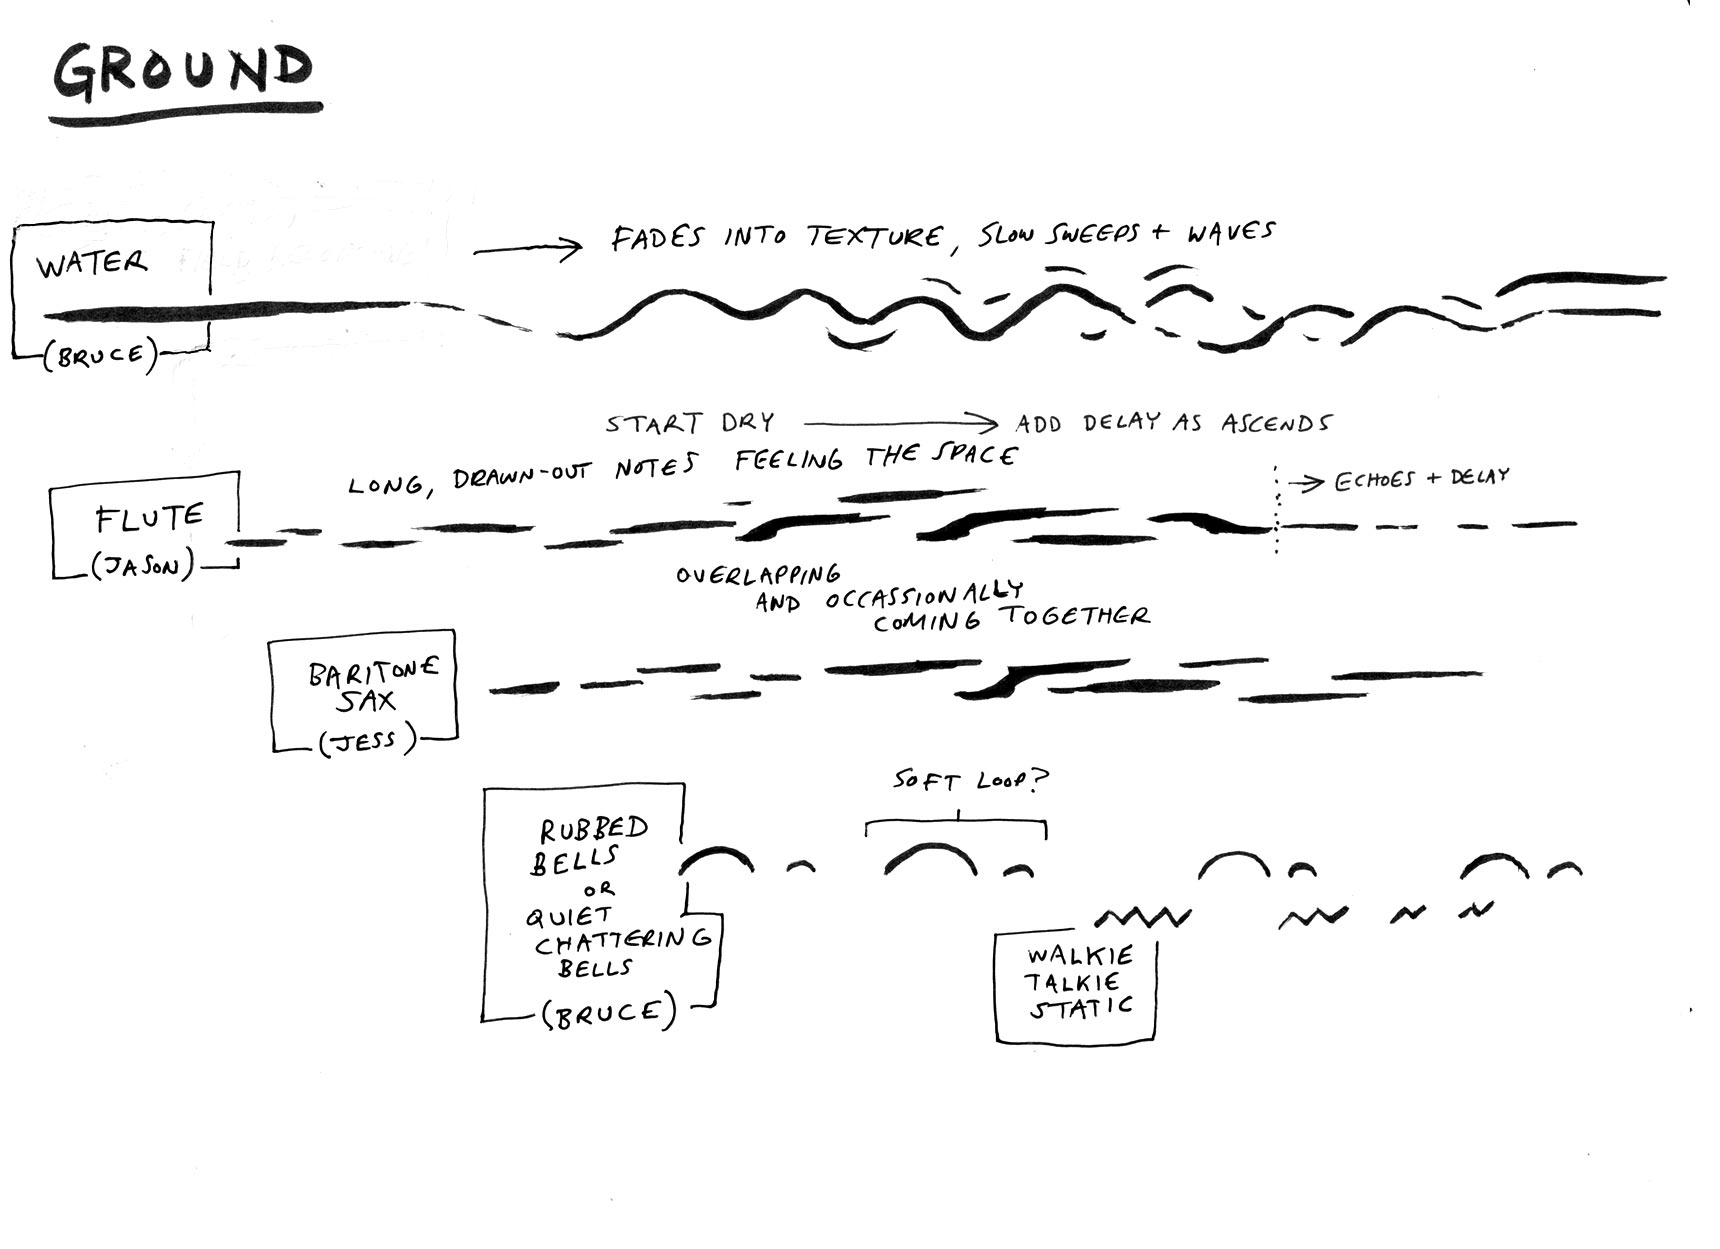 GROUND
WATER
(BRUCE)
FADES INTO TEXTURE, SLOW SWEEPS + WAVES
START DRY
ADD DELAY AS ASCENDS
LONG, DRAWN-OUT NOTES FEELING THE SPACE
ECHOES + DELAY
FLUTE
(JASON)
OVERLAPPING
AND OCCASSIONALLY
COMING TOGETHER
BARITONE
SAX
(JESS)
SOFT LOOP?
RUBBED
BELLS
OR
QUIET
CHATTERING
BELLS
(BRUCE)
WALKIE
TALKIE
STATIC